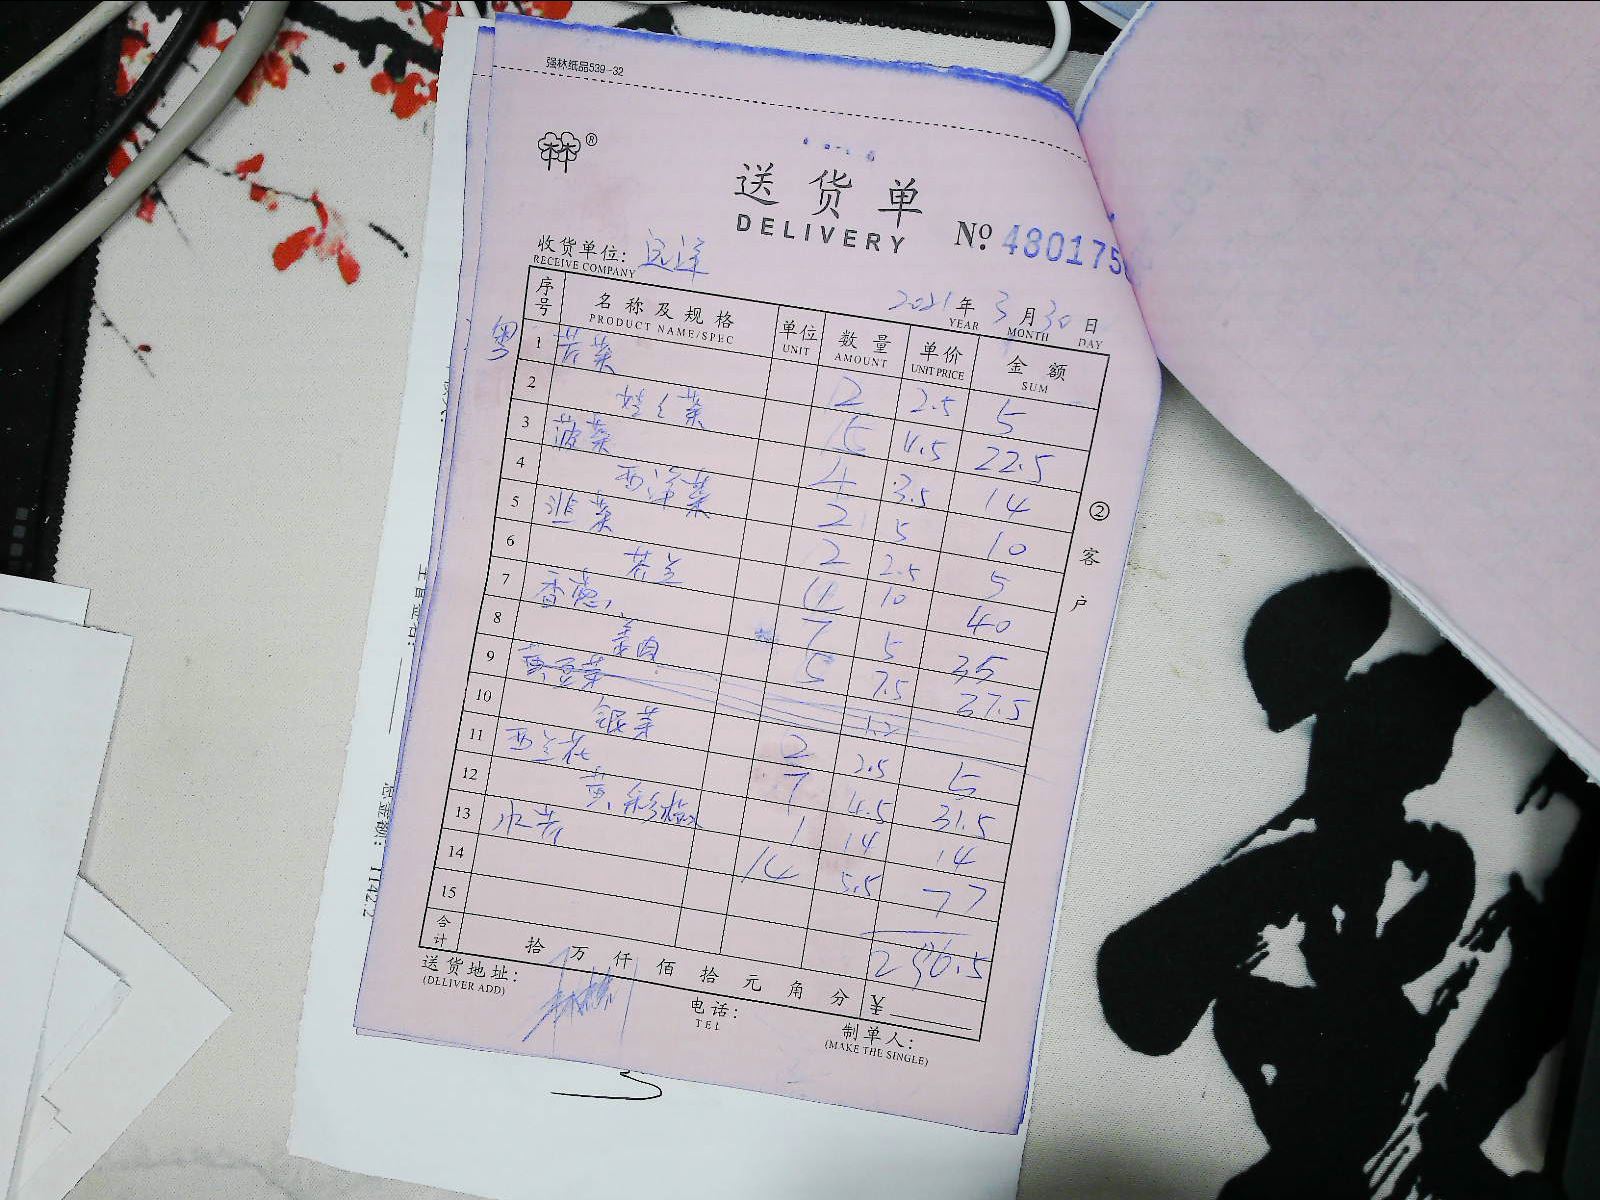 强林纸品539-32
林林®
送货单
DELIVERY
№ 480175
收货单位: 远洋
RECEIVE COMPANY
2021年 3月 30日
YEAR MONTH DAY
序号 名称及规格 单位 数量 单价 金额
PRODUCT NAME/SPEC UNIT AMOUNT UNIT PRICE SUM
粤
1 芥菜 2 2.5 5
2 娃娃菜 15 4.5 22.5
3 菠菜 4 3.5 14
4 西洋菜 2 5 10
5 韭菜 2 2.5 5
6 芥兰 4 10 40
7 香葱 7 5 35
8 姜肉 5 7.5 37.5
9
10 银芽 2 2.5 5
11 西兰花 7 4.5 31.5
12 黄彩椒 1 14 14
13 水芹 14 5.5 77
14
15
296.5
合计 拾万仟佰拾元角分 ¥
送货地址:
(DELIVER ADD)
电话:
TEL
制单人:
(MAKE THE SINGLE)
②客户
总金额: 1142.2